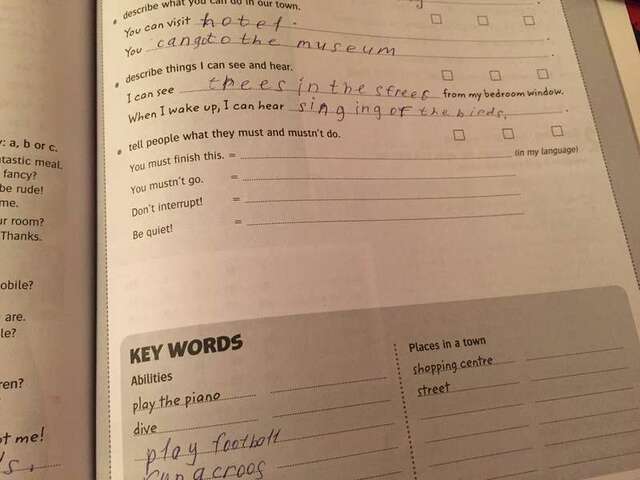 describe what you can do in our town.
You can visit hotel.
You can go to the museum
describe things I can see and hear.
I can see trees in the street from my bedroom window.
When I wake up, I can hear singing of the birds.
tell people what they must and mustn't do.
You must finish this. =
(in my language)
You mustn't go. =
Don't interrupt! =
Be quiet! =
: a, b or c.
tastic meal.
fancy?
be rude!
me.
ur room?
Thanks.
obile?
are.
le?
ren?
t me!
KEY WORDS
Abilities
play the piano
dive
play football
run acroos
Places in a town
shopping centre
street